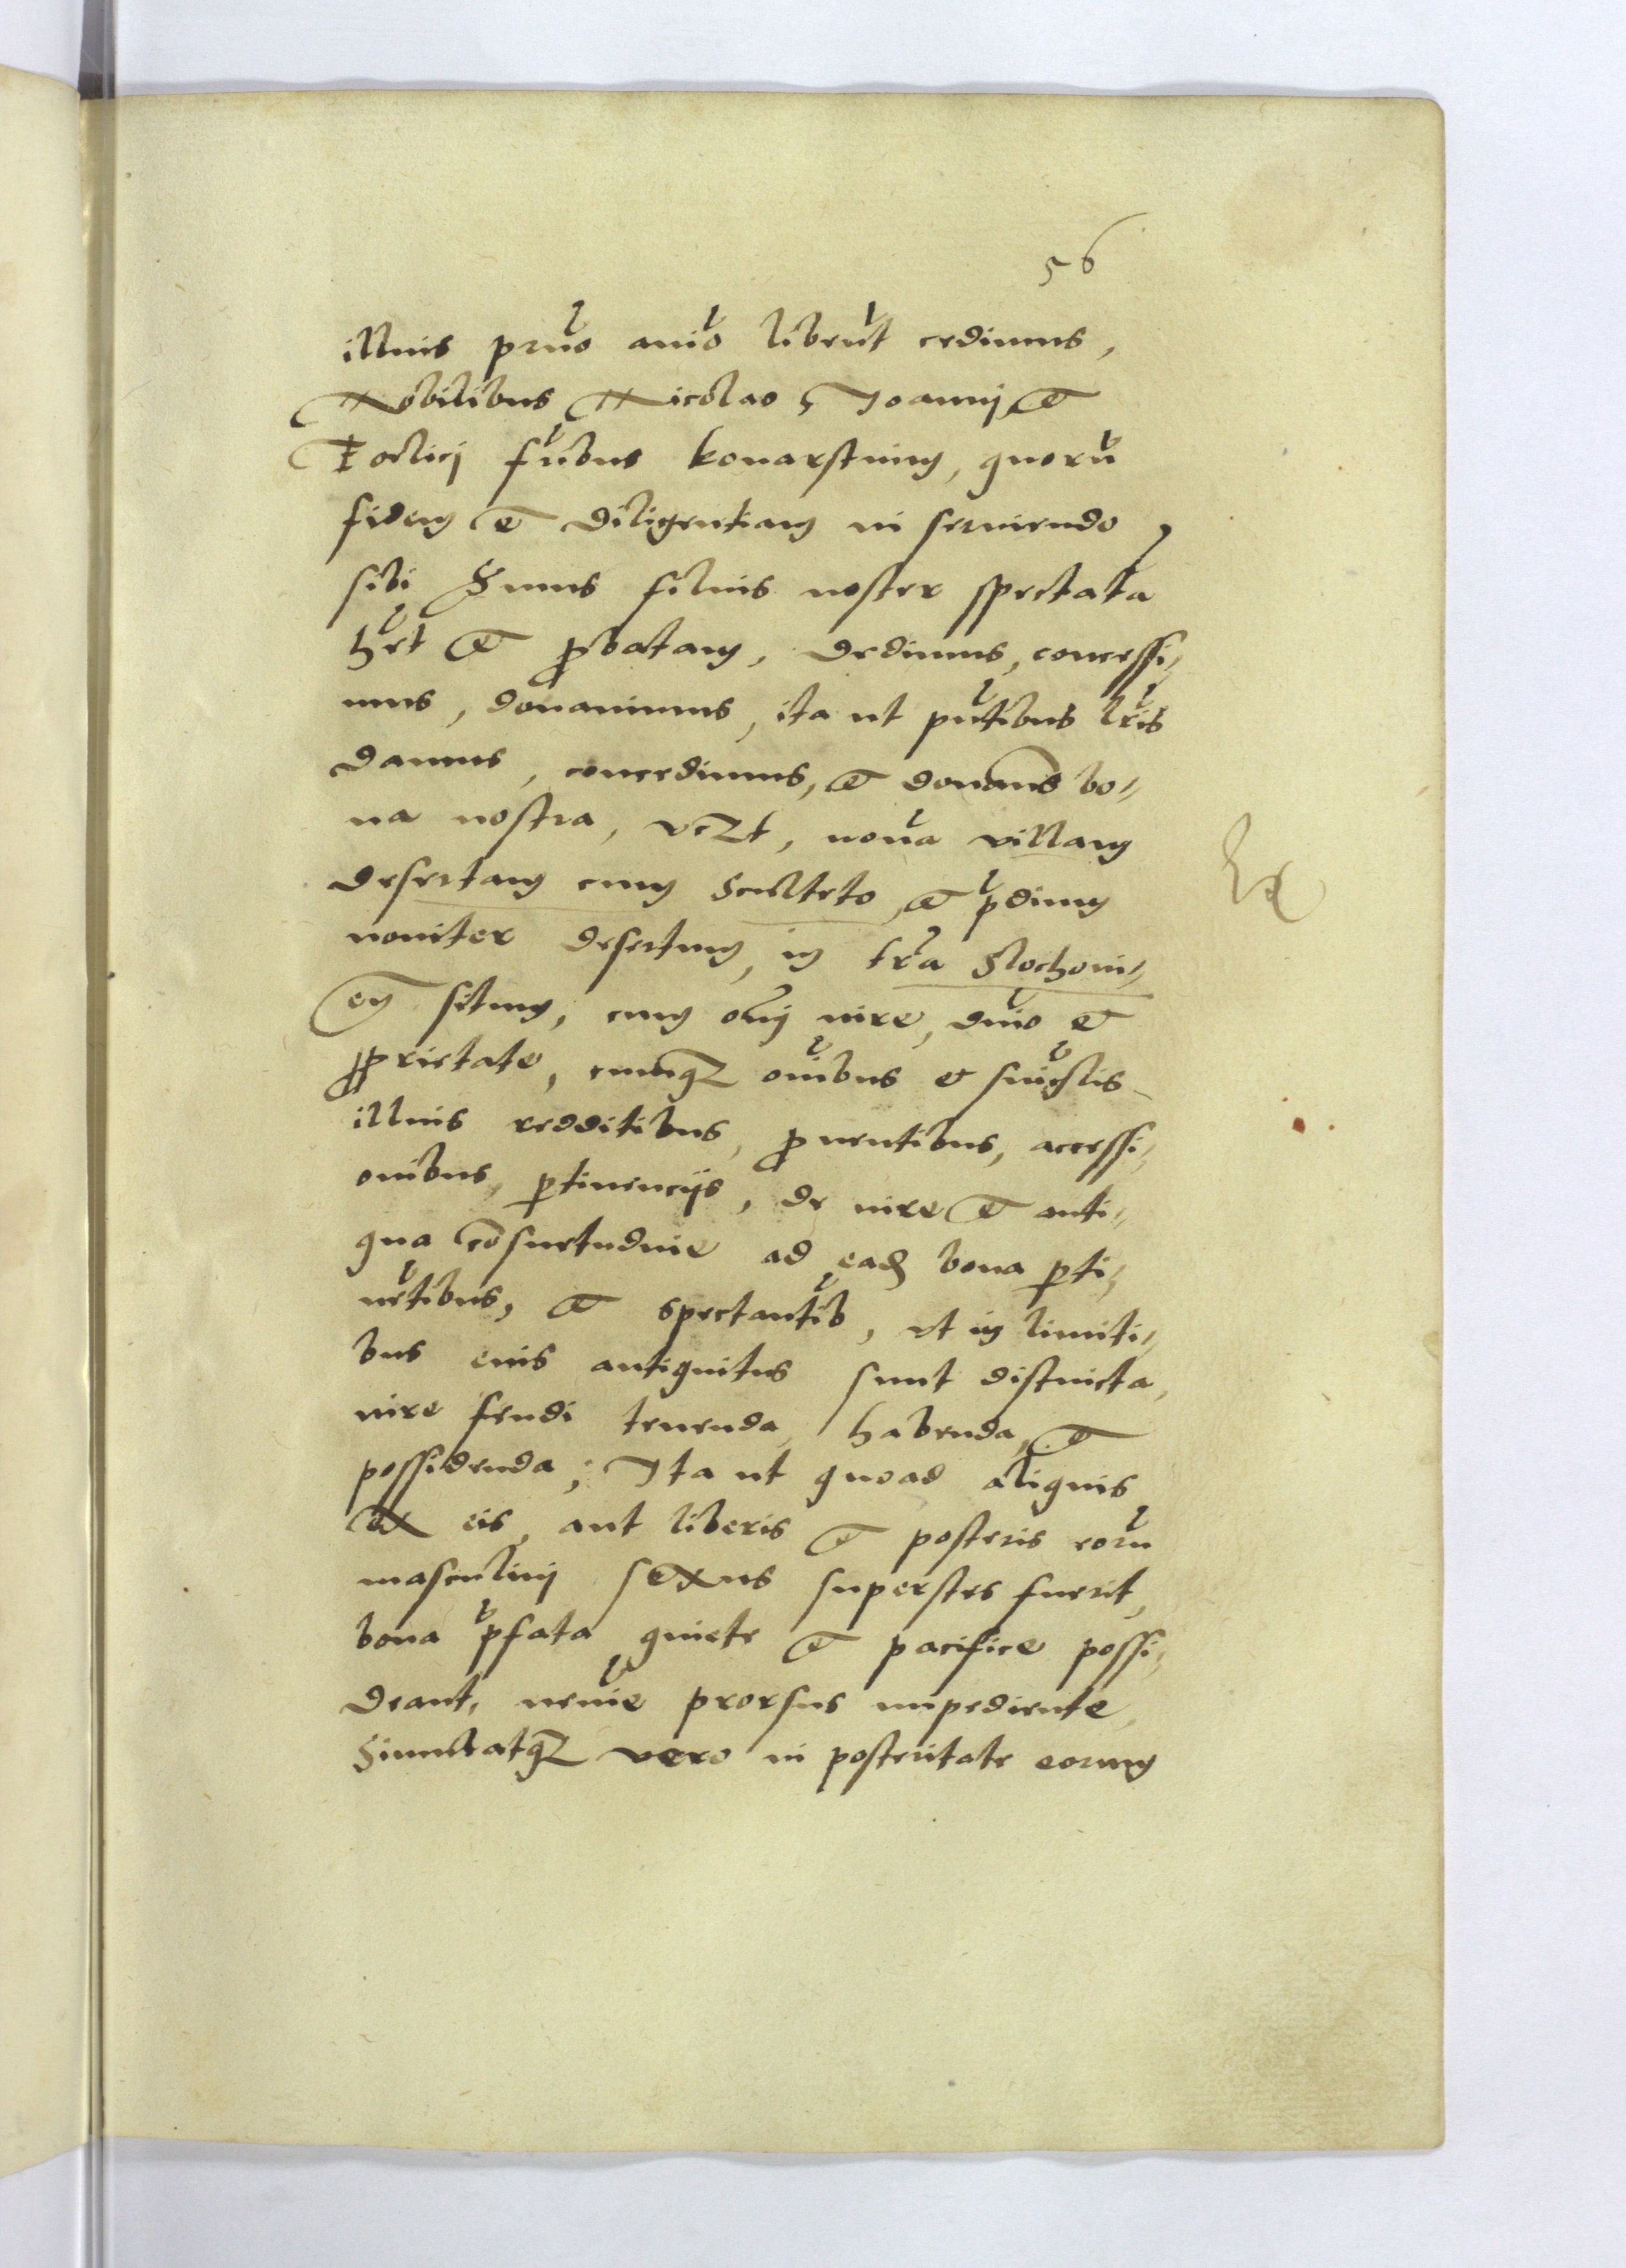 56
illius prĩo anĩo libeñt cedimus,
Nobilibus Nicolao, Joannij, et
fr̃ibus konarstinij, quorũ
fidem et diligentiam in serviendo
sibi Sr̃mus filius noster spectatã
hr̃et et probatam, dedimus, concessi„
mus, donauimus, ita ut pñtibus lr̃is
damus, concedimus, et donam̃s bo„
na nostra, vczt, nouã villam
desertam cum Sculteto, et p̃dium
nouiter desertum, in tr̃a Slochoui„
en̄ situm, cum om̃j iure, dñio et
proprietate, cumq3 oñibus et siñglis
illius redditibus, prouentibus, accessi„
onibus, pertinencijs, de iure et anti„
qua cōsuetudine ad eadẽ bona perti„
nẽtibus, et spectantib, ut in limiti„
bus euis antiquitus sunt distincta,
iure feudi tenenda, habenda, et
possidenda; Ita ut quoad aliquis
ex eis, aut liberis et posteris eorũ
masculinj sexus superstes fuerit,
bona p̃fata quiete et pacifice possi„
deant, nemĩe prorsus impediente,
Simulatq3 vero in posteritate eorum